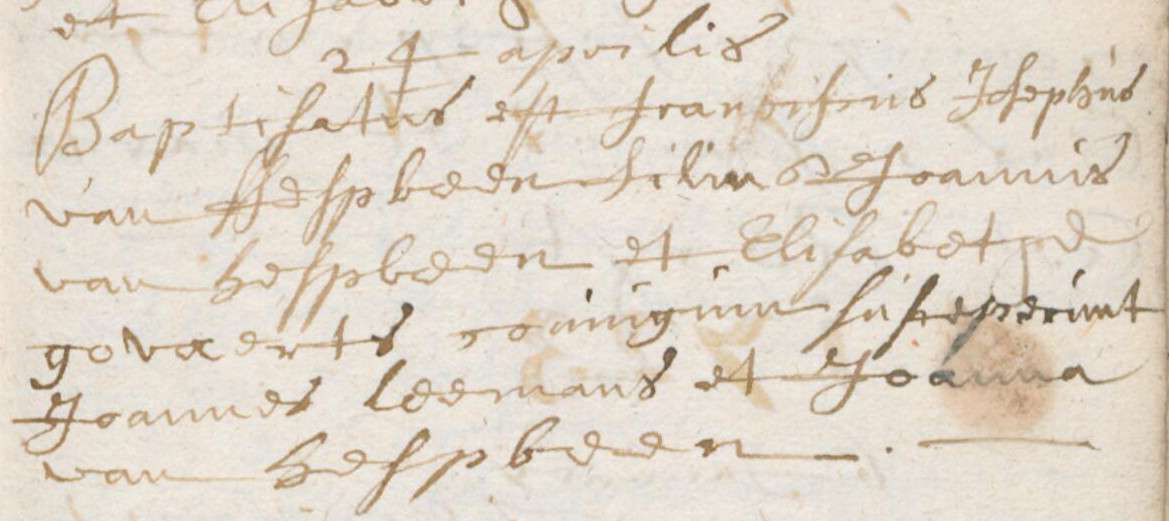 et Elisabet
24 aprilis
Baptisatus est franciscus Josephus
van hespbeen filius Joannis
van hespbeen et Elisabet
govaerts coniugum susceperunt
Joannes leemans et Joanna
van hespbeen . —